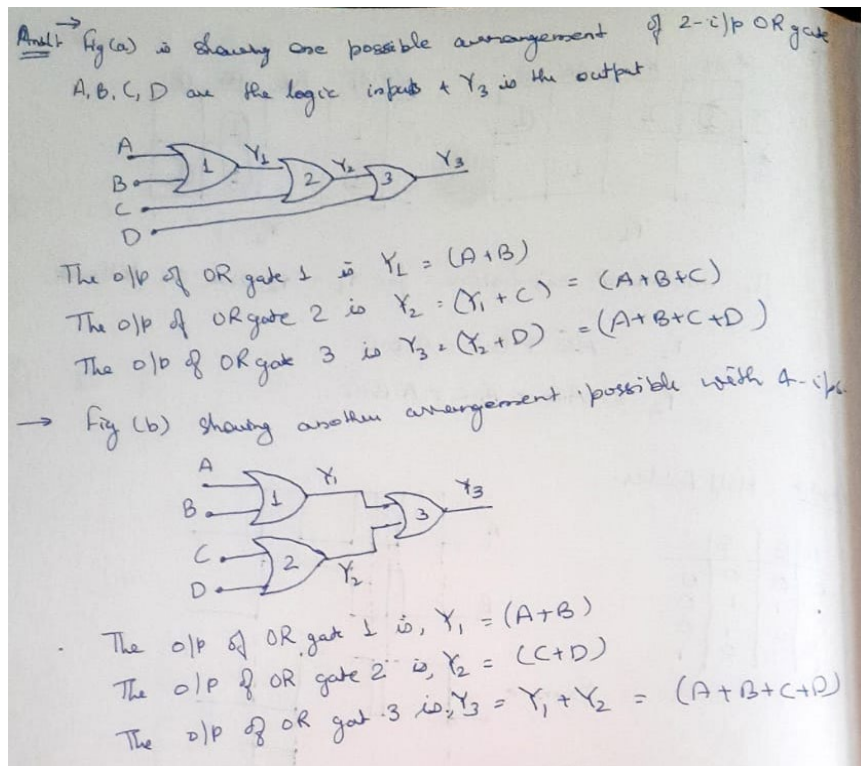 Ans:1→ Fig (a) is showing one possible arrangement of 2-i/p OR gate
A, B, C, D are the logic inputs & Y3 is the output
A
B
C
D
1
Y1
2
Y2
3
Y3
The o/p of OR gate 1 is Y1 = (A+B)
The o/p of OR gate 2 is Y2 = (Y1 + C) = (A+B+C)
The o/p of OR gate 3 is Y3 = (Y2 + D) = (A+B+C+D)
→ Fig (b) showing another arrangement possible with 4-i/ps.
A
B
C
D
1
Y1
2
Y2
3
Y3
The o/p of OR gate 1 is, Y1 = (A+B)
The o/p of OR gate 2 is, Y2 = (C+D)
The o/p of OR gat 3 is, Y3 = Y1 + Y2 = (A+B+C+D)